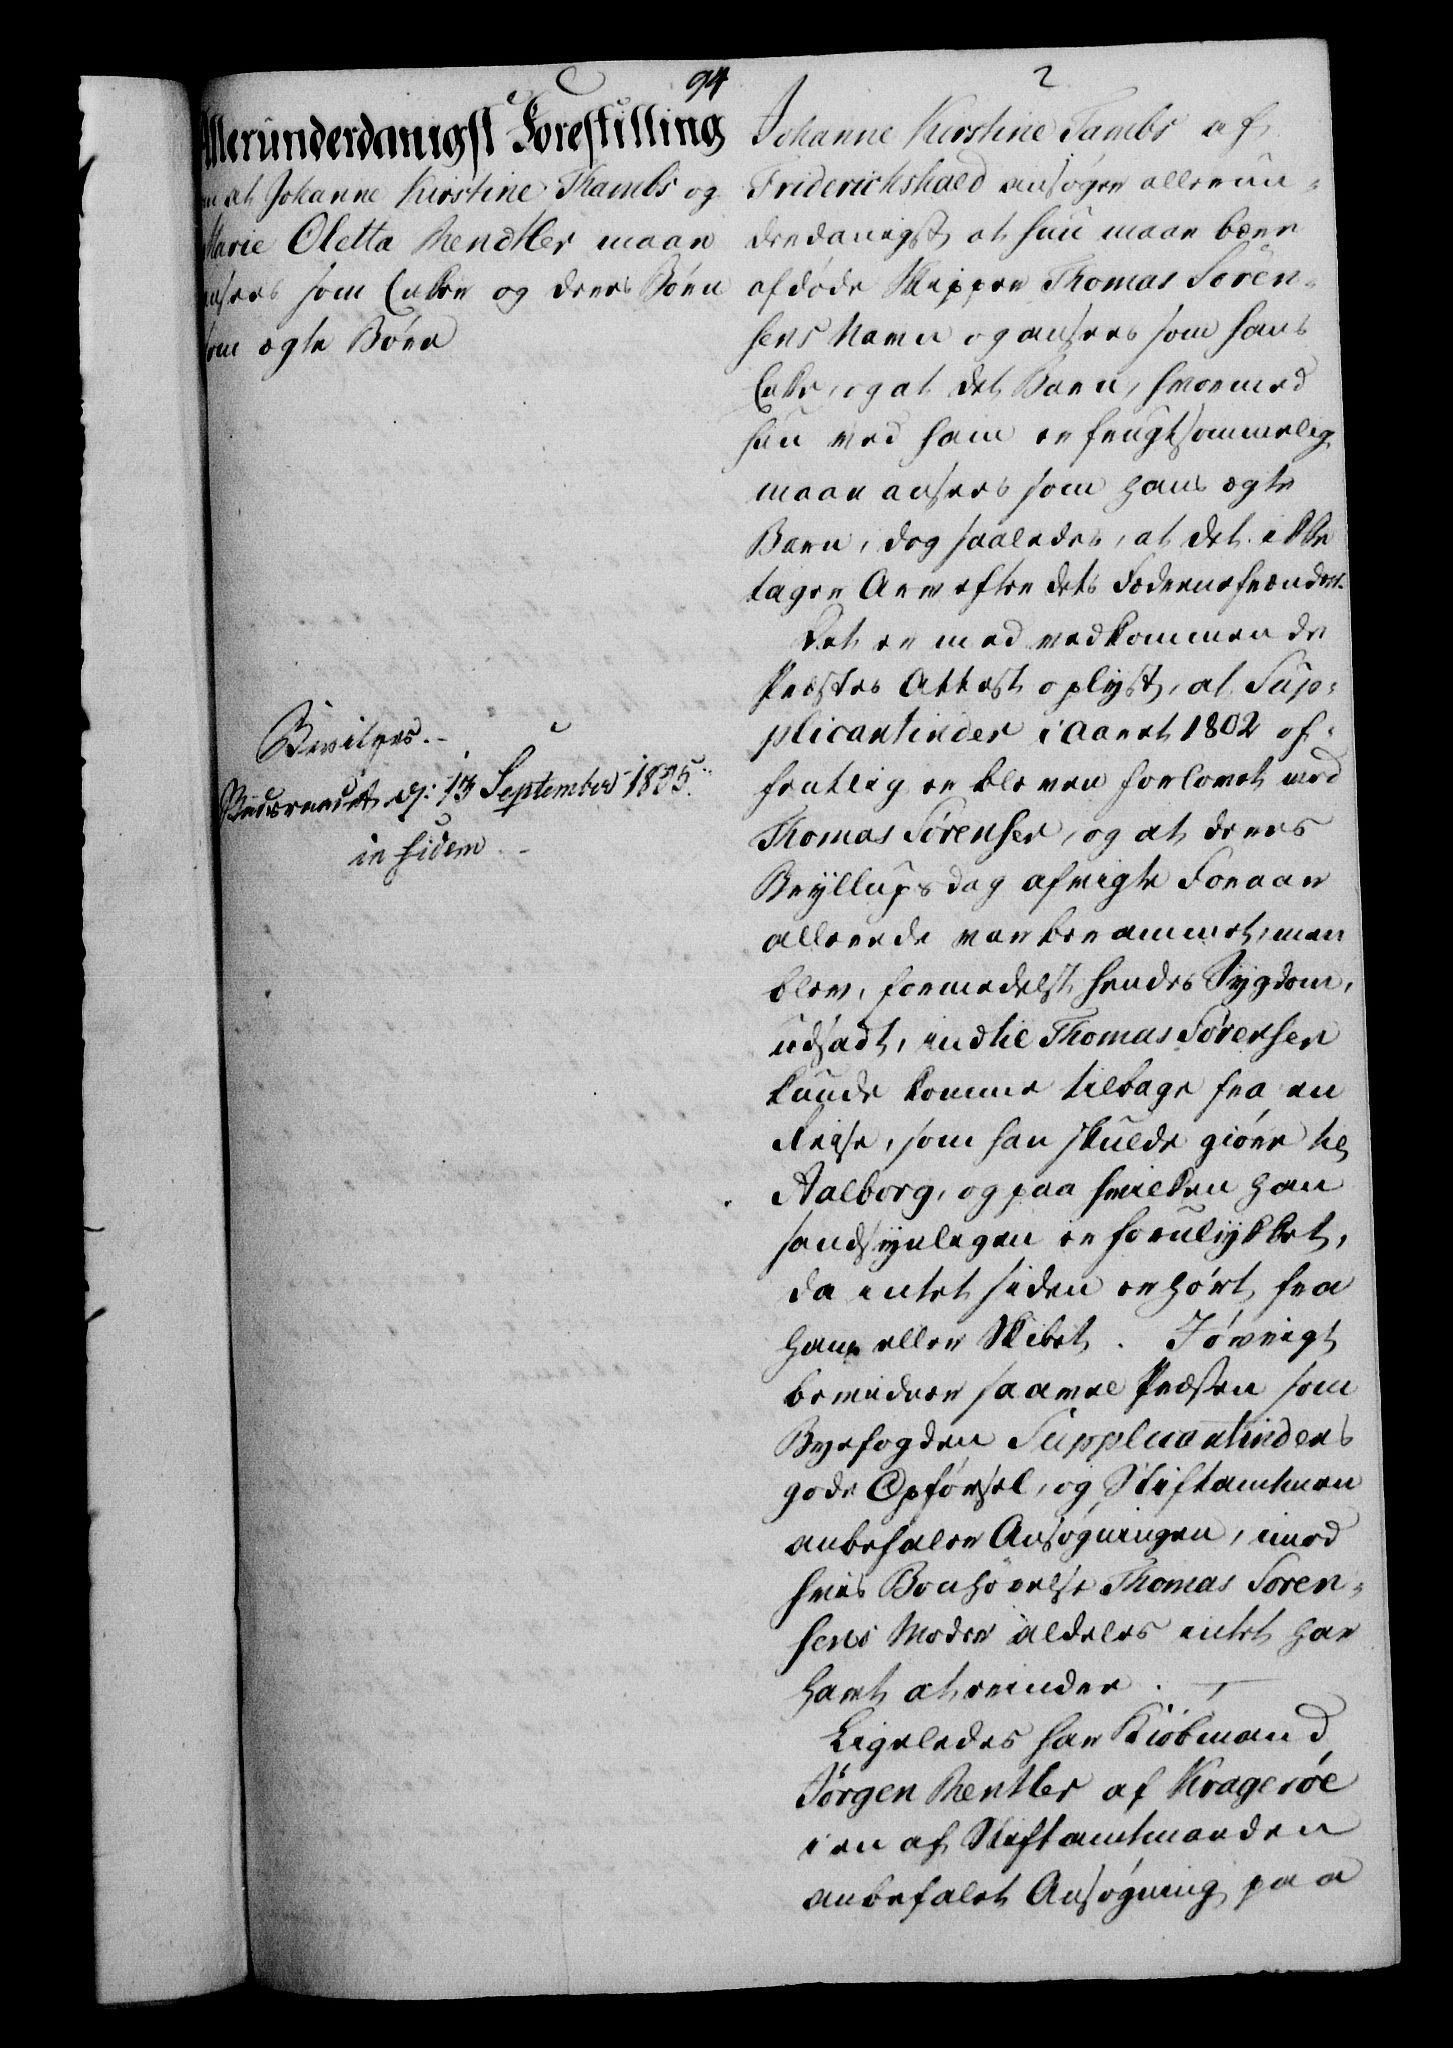 94
2
Allerunderdanigst Forestilling
om at Johanne Kirstine Thambs og
Marie Oletta Rendtler maae
ansees som Enker og deres Børn
som ægte Børn
Bevilges.
d: 13 September 1805.
in fidem
Johanne Kirstine Tambs af
Friderichshald ansøger allerun-
derdanigst, at hun maae bære
afdøde Skipper Thomas Søren-
sens Navn og ansees som hans
Enke, og at det Barn, hvormed
hun ved ham er frugtsommelig,
maae ansees som hans ægte
Barn, dog saaledes, at det ikke
tager Arv efter dets Fæderne frænder.
Det er med vedkommende
Præstes Attest oplyst, at Sup-
plicantinden i Aaret 1802 of-
fentlig er bleven forlovet med
Thomas Sørensen, og at deres
Bryllupsdag afvigte Foraar
allerede var berammet, men
blev, formedelst hendes Sygdom,
udsadt, indtil Thomas Sørensen
kunde komme tilbage fra en
Reise, som han skulde giøre til
Aalborg, og paa hvilken han
sandsynligen er forulykket,
da intet siden er hørt fra
ham eller Skibet. I øvrigt
bevidner saavel Præsten som
Byefogden Supplicantindens
gode Opførsel, og Stiftamtmanden
anbefaler Ansøgningen, imod
hvis Bønhørelse Thomas Soren-
sens Moder aldeles intet har
havt at erindre.
Ligeledes har Kiøbmand
Jørgen Rentler af Kragerøe
i en af Stiftamtmanden
anbefalet Ansøgning paa